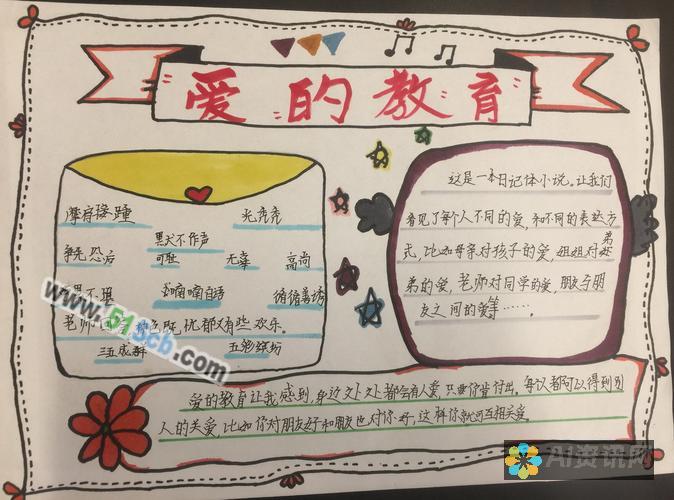 爱的教育
摩肩接踵 光秃秃
争先恐后 默不作声 可耻 无辜 高尚
喃喃自语 循循善诱
老师 既忧郁又有些欢乐。
三五成群 五彩缤纷
这是一本日记体小说。让我们
看见了每个人不同的爱，和不同的表达方
式，比如母亲对孩子的爱，姐姐对弟
弟的爱，老师对同学的爱，朋友与朋
友之间的爱等……。
爱的教育让我感到，身边处处都会有人爱，只要你肯付出。每次都可以得到别
人的关爱，比如你对朋友好和朋友也对你好，这样你就可互相关爱。
www.51scb.com
AI资讯网